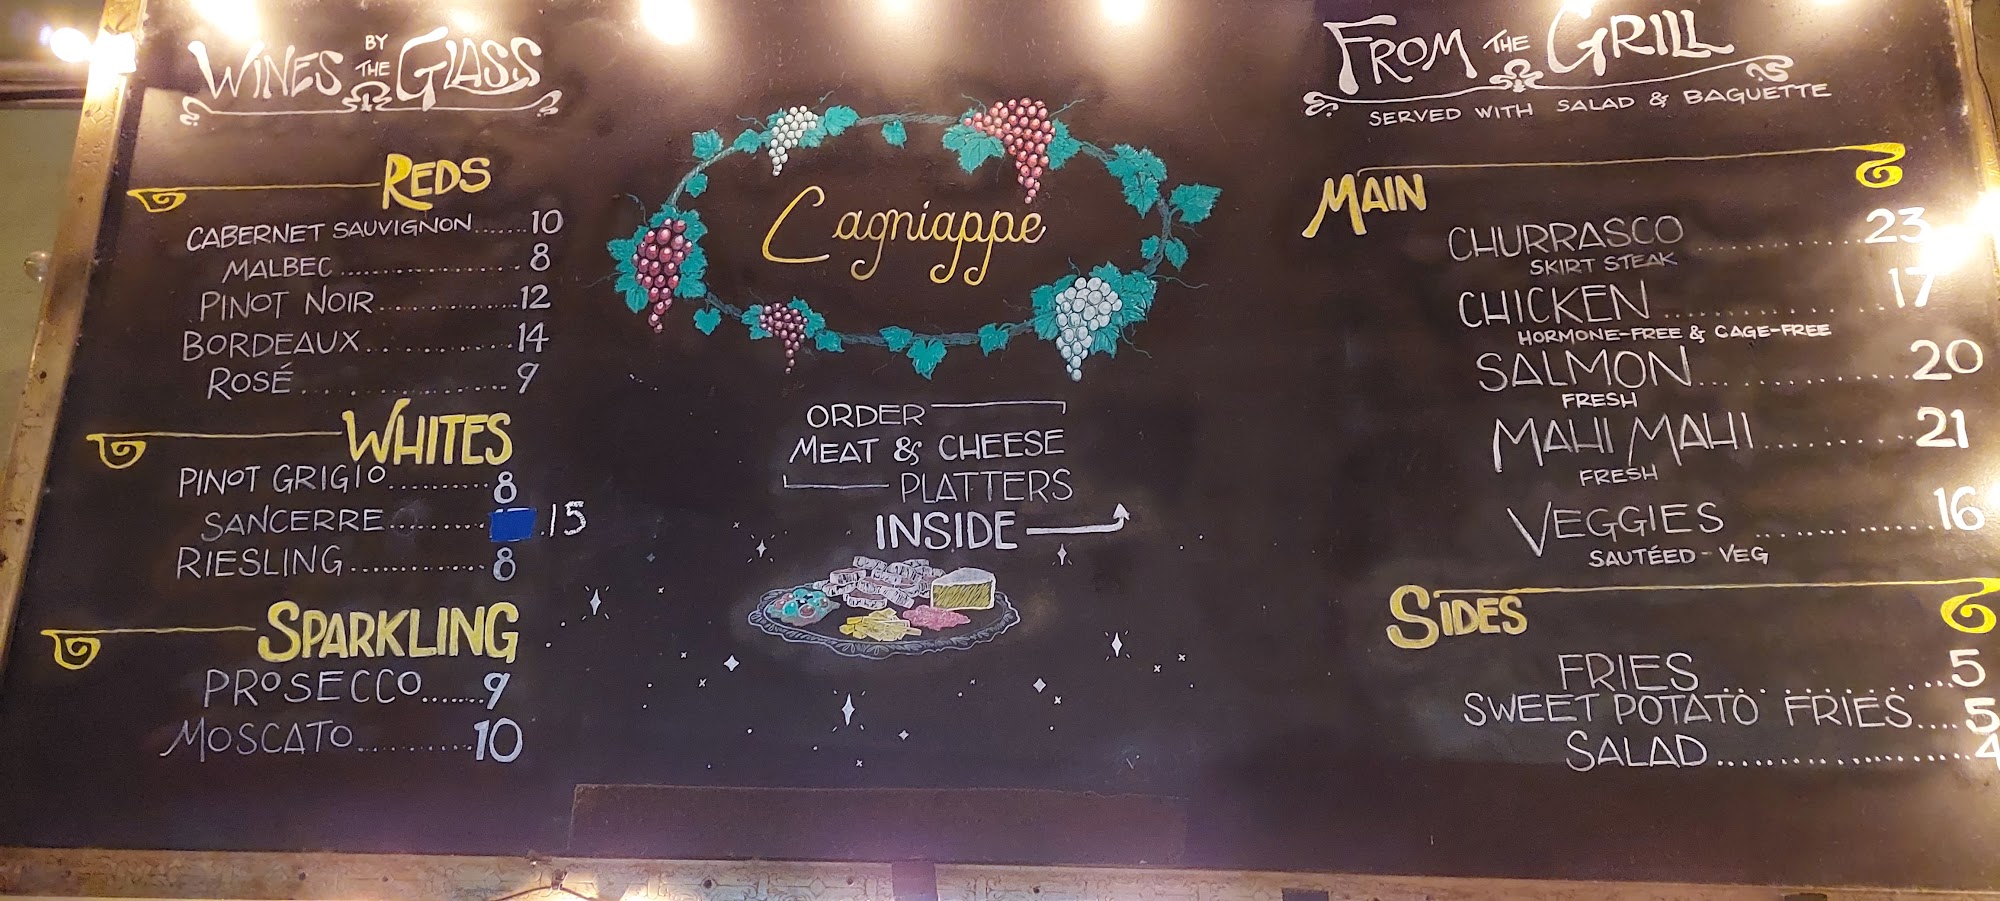 WINES BY THE GLASS
REDS
CABERNET SAUVIGNON.......10
MALBEC...................8
PINOT NOIR.................12
BORDEAUX...............14
ROSÉ....................9
WHITES
PINOT GRIGIO..........8
SANCERRE.........15
RIESLING.............8
SPARKLING
PROSECCO.......9
MOSCATO...........10
Cagniappe
ORDER
MEAT & CHEESE
PLATTERS
INSIDE
FROM THE GRILL
SERVED WITH SALAD & BAGUETTE
MAIN
CHURRASCO...............23
SKIRT STEAK
CHICKEN...............17
HORMONE-FREE & CAGE-FREE
SALMON...............20
FRESH
MAHI MAHI............21
FRESH
VEGGIES............16
SAUTÉED-VEG
SIDES
FRIES...............5
SWEET POTATO FRIES....5
SALAD...................4